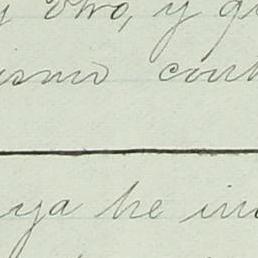 y otro, y q
ismo con
ya he in